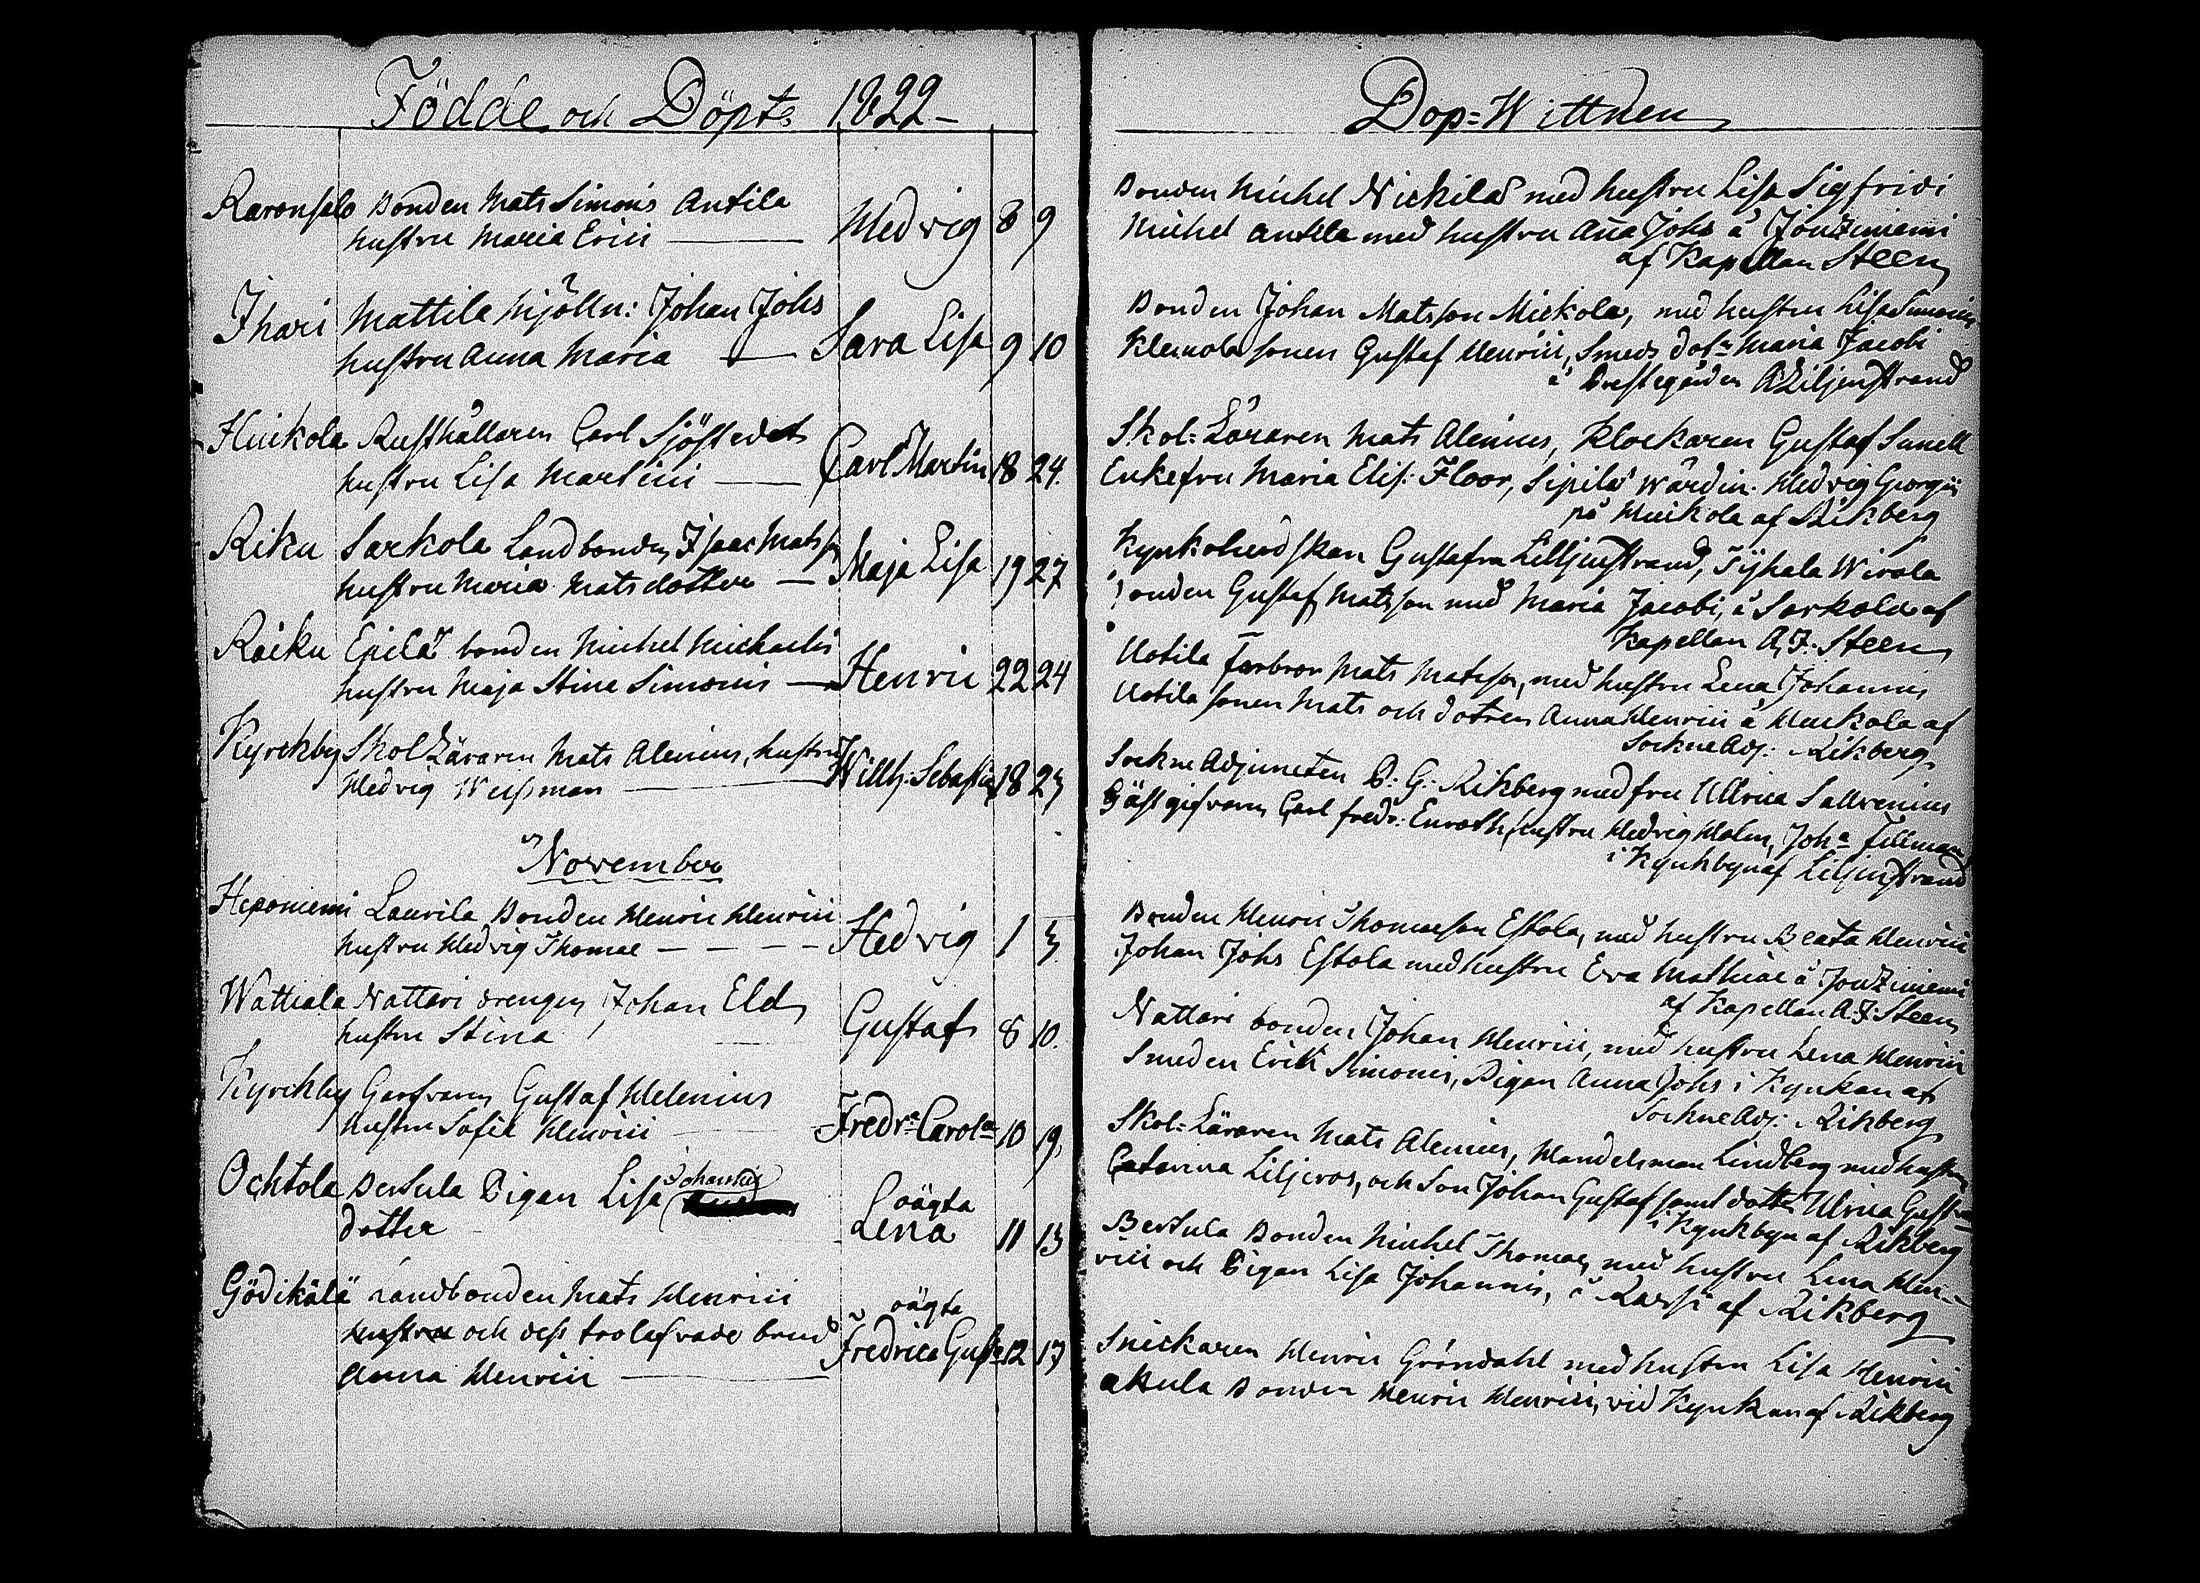 Födde och Döpte 1822
Raronsalo Bonden Mats Simonis Antila Hedvig 8 9
hustru Maria Erici
Ihari Mattila Mjölln: Johan Johs Sara Lisa 9 10
hustru Anna Maria
Huikola Rusthållaren Carl Sjöstedt Carl Martin 18 24.
hustru Lisa Martini
Riku Sarkola Landbonden Isaac Matss Maja Lisa 19 27
hustru Maria Matsdotter
Raiku Epilä bonden Michel Michaelis Henric 22 24
hustru Maja Stina Simonis
Kyrckby Skol Läraren Mats Alenius, hustru Willh: Sebastian 18 23
Hedvig Weisman
November
Heponiemi Laurila Bonden Henric Henrici Hedvig 1 3
hustru Hedvig Thomae
Wattiala Nattari drengen Johan Eld Gustaf 8 10.
hustru Stina
Kyrckby Garfvaren Gustaf Helenius Fredr: Carola 10 19
hustru Sofie Henrici
Ochtola Bertula Pigan Lisa Johannis oägta
dotter Lena 11 13
Gödikälä Landbonden Mats Henrici oägta
hustru och dess trolofvade brud Fredrica Gusta 12 17
Anna Henrici
Dop=Wittnen
Bonden Michel Nickilä med hustru Lisa Sigfridi
Michel Antila med hustru Anna Johs å Jouziniemi
af Kapellan Steen
Bonden Johan Matsson Mickola, med hustru Lisa Simonis
sonen Gustaf Henrici, Smeds dotr Maria Jacobi
å Prestegården A Liljenstrand
Skol: Läraren Mats Alenius, Klockaren Gustaf Sanell
Enkefru Maria Elis: Floor, Sipilä Wärdin. Hedvig Georgii
på Huikola af Rikberg
Gustafva Lilljenstrand, Tyhala Wirola
Bonden Gustaf Matsson med Maria Jacobi, å Sarkola af
Kapellan A, J. Steen
Uotila Farbror Mats Matsson, med hustru Lena Johannis
Uotila sonen Mats och dotren Anna Henrici å Huikola af
Sockne Adj: Rikberg
Sockne Adjuncten P: G: Rikberg med fru Ullrica Sallvenius
Gästgifvaren Carl Fredr: Enroth, hustru Hedvig Malm, Joha Tillman
i Kyrkbyn af Liljenstrand
Bonden Henric Thomasson Estola, med hustru Beata Henrici
Johan Johs Estola med hustru Eva Mathiae å Jouziniemi
af Kapellan A. J: Steen
Nattari bonden Johan Henrici, med hustru Lena Henrici
Smeden Erik Simonis, Pigan Anna Johs i Kyrkan af
Sockne Adj: Rikberg
Skol: Läraren Mats Alenius, Handelsman Lindberg med hustru
Catarina Liljeros, och Son Johan Gustaf samt dotter Ulrica Gustava
i Kyrkbyn af Rikberg
Bertula Bonden Michel Thomae, med hustru Lena Hen-
rici och Pigan Lisa Johannis, å af Rikberg
Snickaren Henric Gröndahl med hustru Lisa Henrici
Akula Bonden Henric Henrici, vid Kyrkan af Rikberg